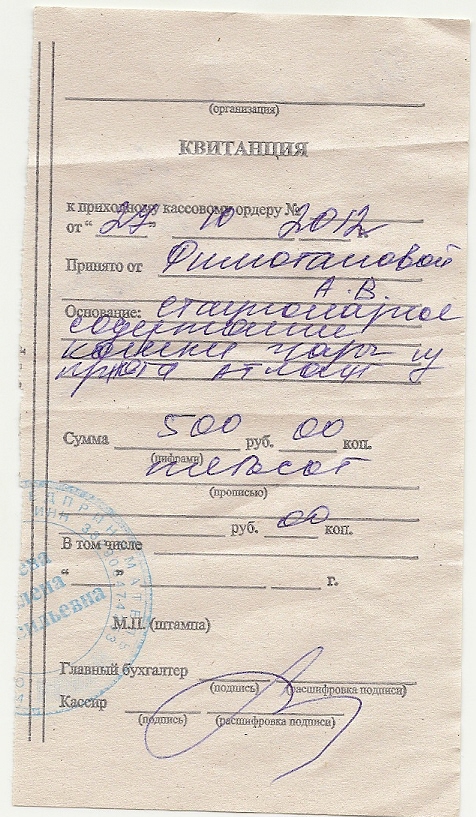 (организация)
КВИТАНЦИЯ
к приходному кассовому ордеру №
от " 27 " 10 2012 г.
Принято от Филютановой
А.В.
Основание: стационарное
содержание
кошки
приюта
Сумма 500 руб. 00 коп.
(цифрами)
пятьсот
(прописью)
руб. 00 коп.
В том числе
" г.
М.П. (штампа)
Главный бухгалтер
(подпись) (расшифровка подписи)
Кассир
(подпись) (расшифровка подписи)